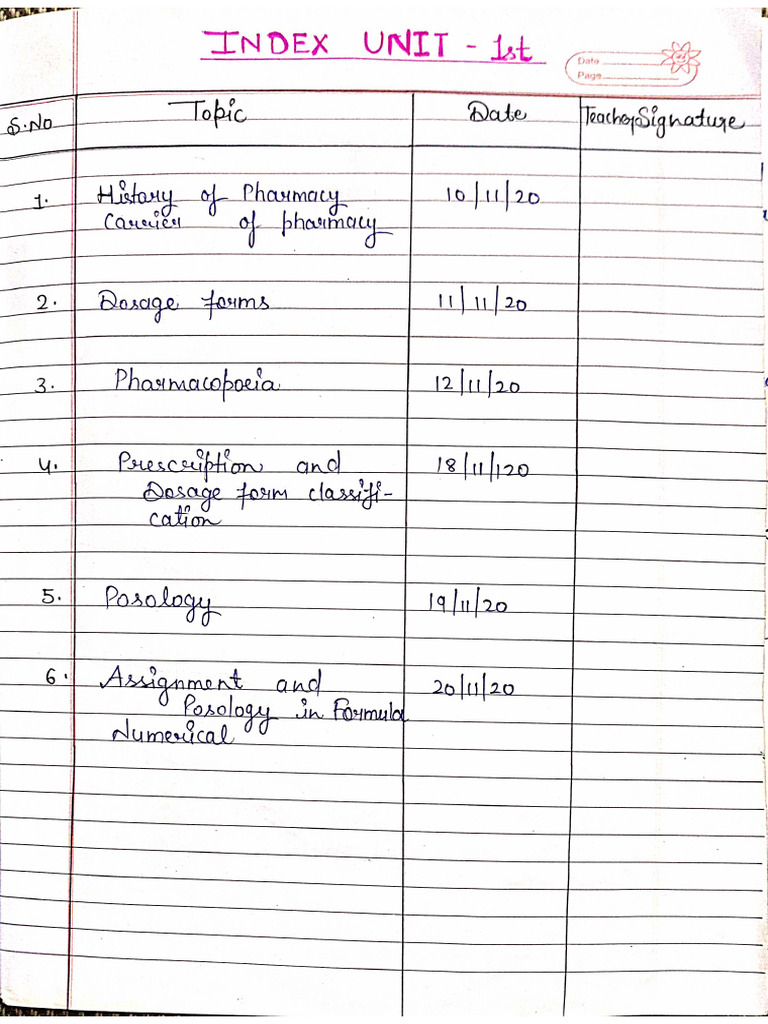 INDEX UNIT - 1st
Date
Page
S.No Topic Date Teacher Signature
1. History of Pharmacy 10/11/20
Carrier of pharmacy
2. Dosage forms 11/11/20
3. Pharmacopoeia 12/11/20
4. Prescription and 18/11/120
Dosage form classifi-
cation
5. Posology 19/11/20
6. Assignment and 20/11/20
Posology in Formula
Numerical